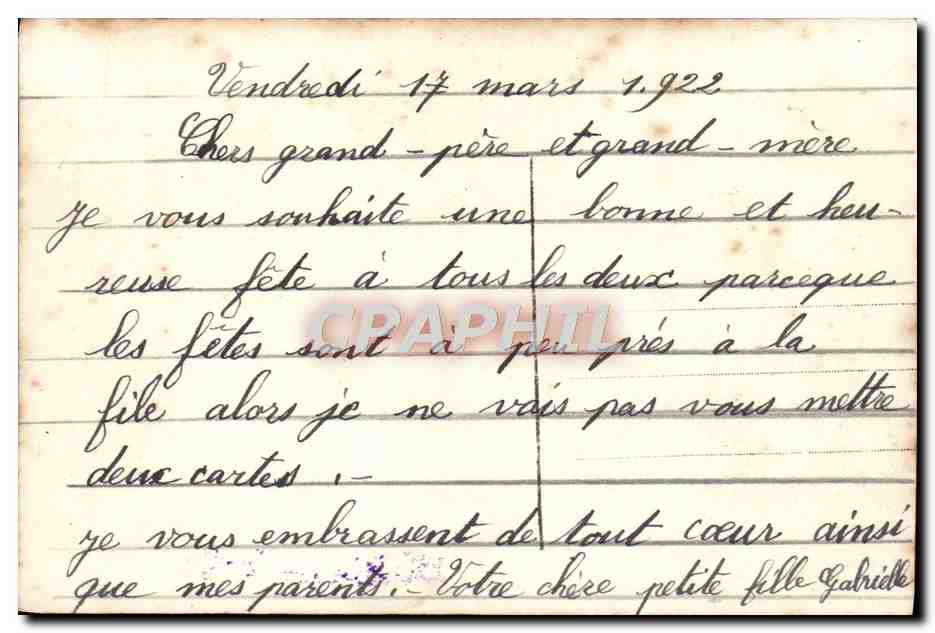 Vendredi 17 mars 1.922
Chers grand-père et grand-mère
Je vous souhaite une bonne et heu-
reuse fête à tous les deux parceque
les fêtes sont à peu prés à la
file alors je ne vais pas vous mettre
deux cartes.-
Je vous embrassent de tout cœur ainsi
que mes parents.- Votre chère petite fille Gabrielle
CPAPHIL